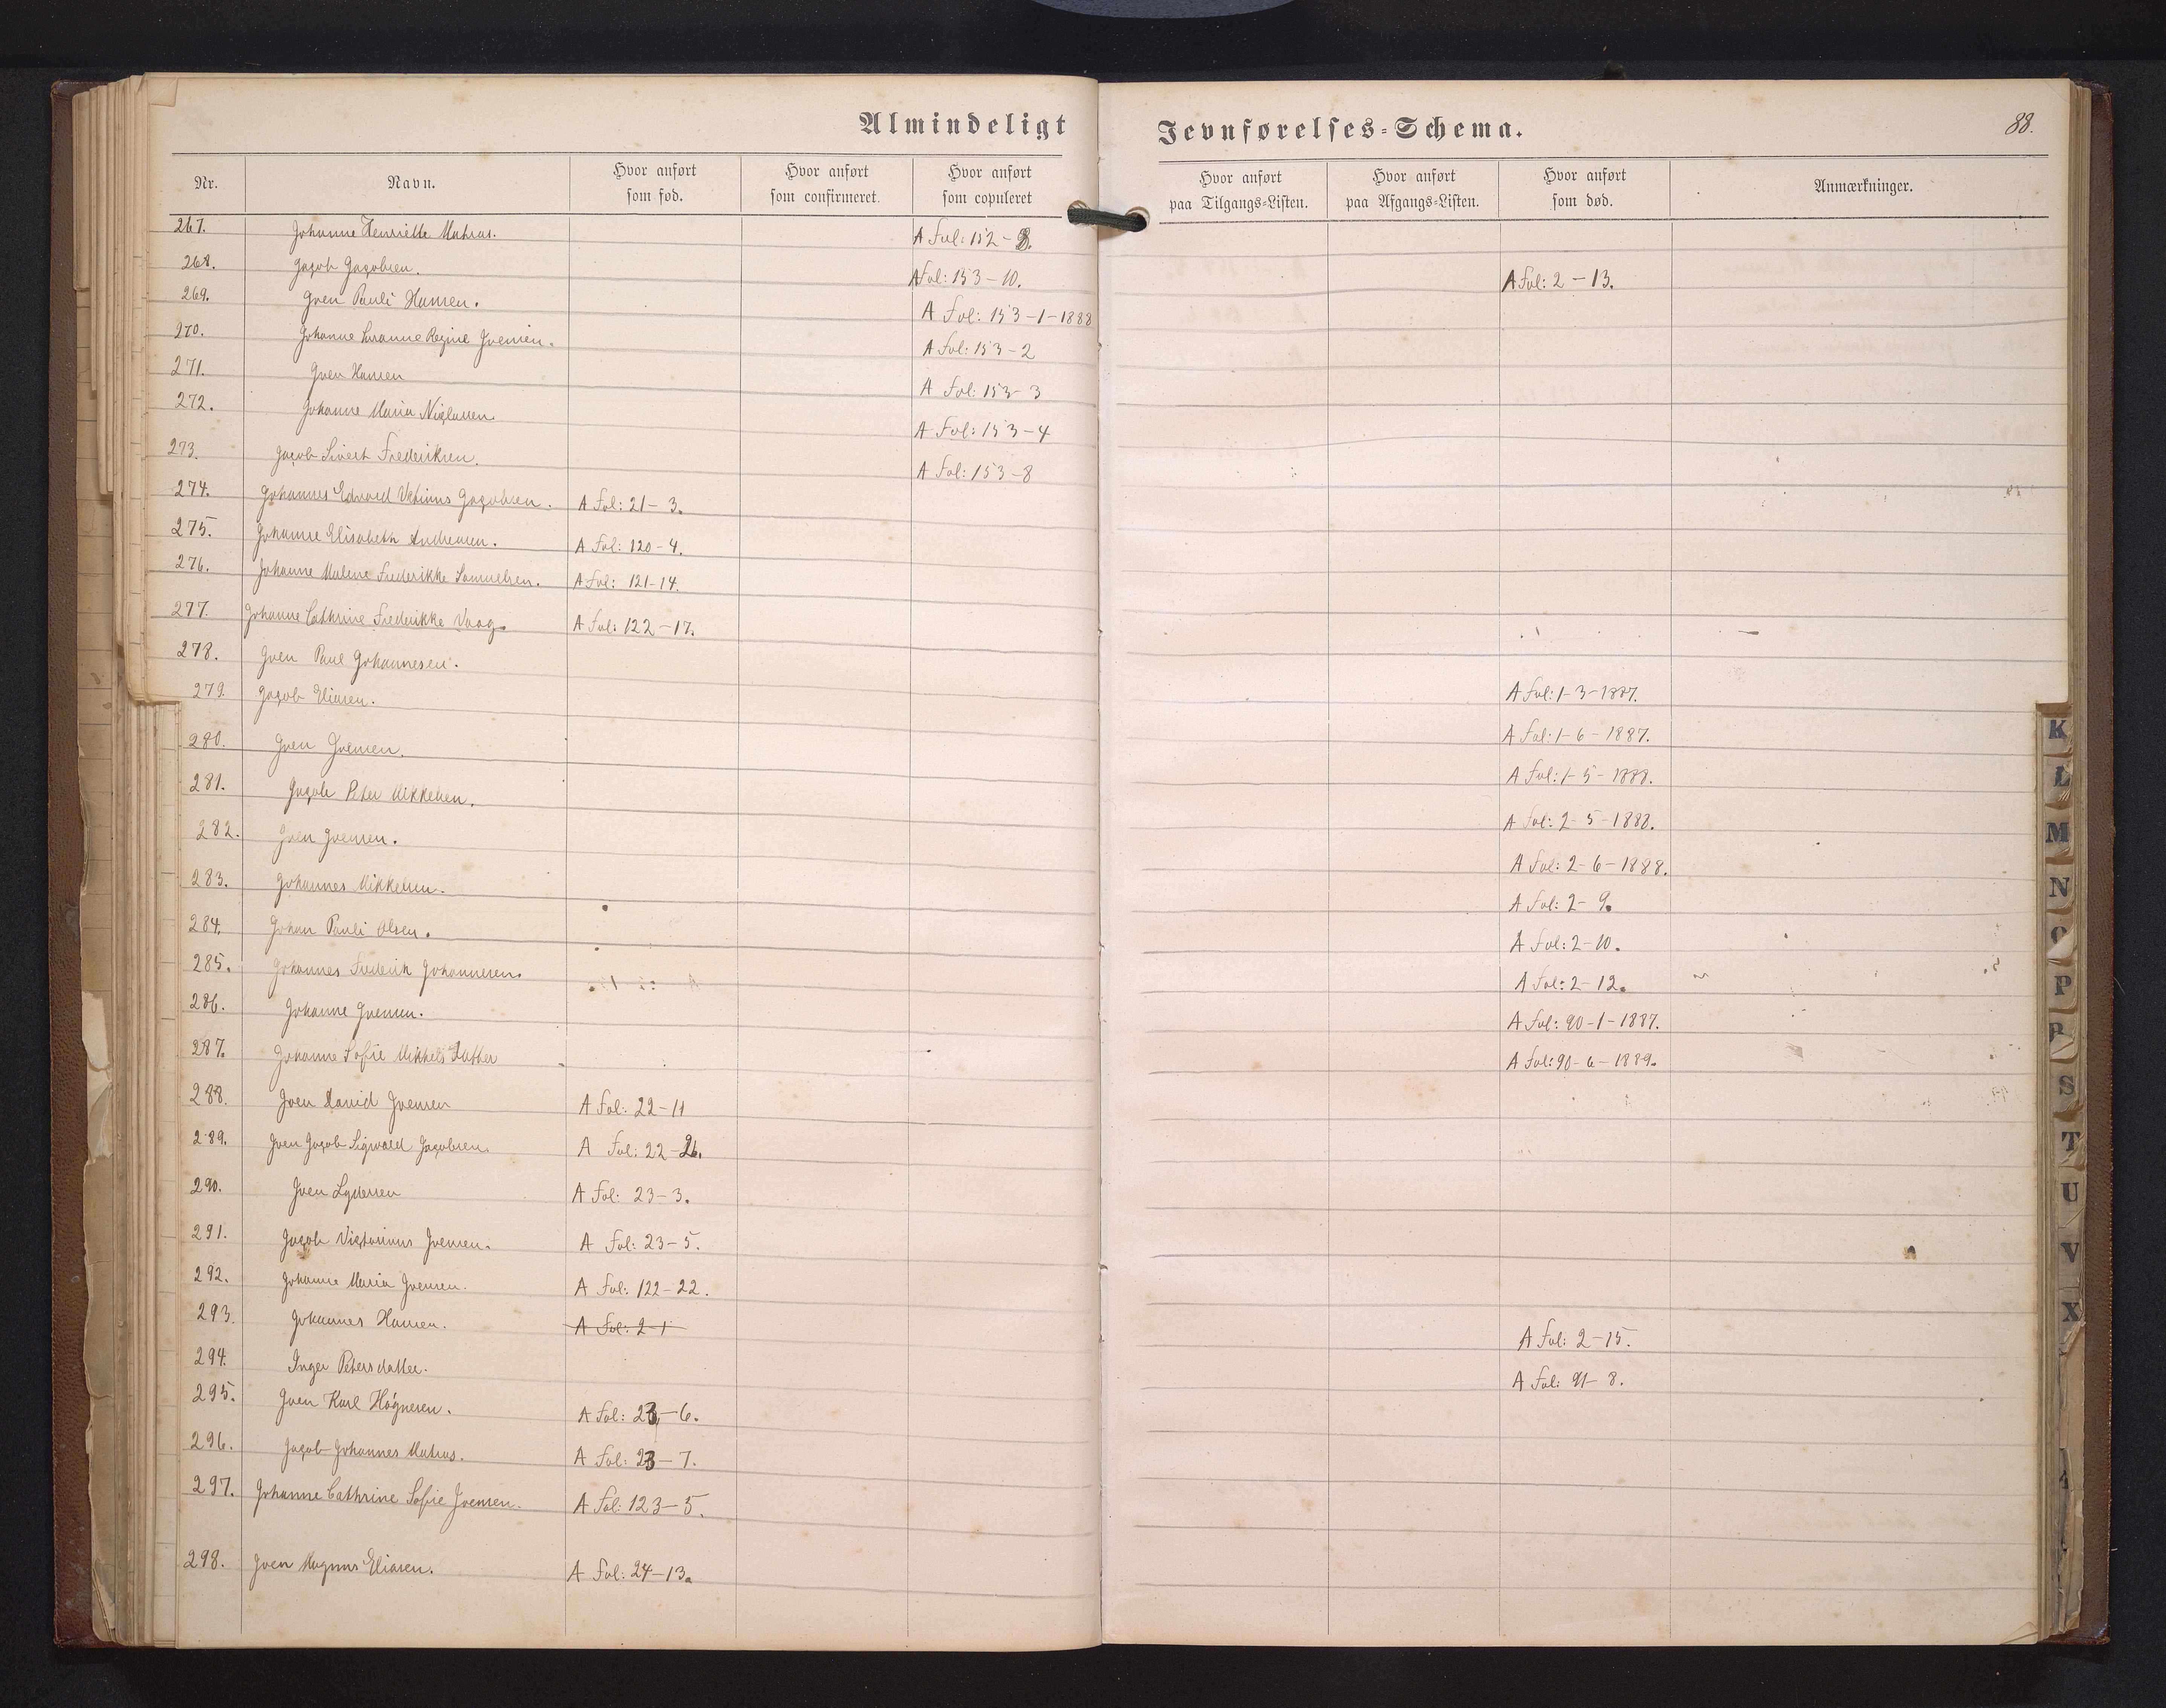 Almindeligt Jevnførelses-Schema. 88.
Nr. Navn. Hvor anført som fød. Hvor anført som confirmeret. Hvor anført som copuleret Hvor anført paa Tilgangs-Listen. Hvor anført paa Afgangs-Listen. Hvor anført som død. Anmærkninger.
267. Johanne Henriette Matras. A Fol: 152-
268. Jacob Jacobsen. A Fol: 153-10. A Fol: 2-13.
269. Joen Pauli Hansen. A Fol: 153-1-1888
270. Johanne Susanne Regine Joensen. A Fol: 153-2
271. Joen Hansen A Fol: 153-3
272. Johanne Maria Niclassen A Fol: 153-4
273. Jacob Sivert Frederiksen. A Fol: 153-8
274. Johannes Edvard Jacobsen. A Fol: 21-3.
275. Johanne Elisabeth Andreasen. A Fol: 120-4.
276. Johanne Malene Frederikke Samuelsen. A Fol: 121-14.
277. Johanne Cathrine Frederikke Vaag. A Fol: 122-17.
278. Joen Paul Johannesen.
279. Jacob Eliasen. A Fol: 1-3-1887.
280. Joen Joensen. A Fol: 1-6-1887.
281. Jacob Peter Mikkelsen. A Fol: 1-5-1888.
282. Joen Joensen. A Fol: 2-5-1888.
283. Johannes Mikkelsen. A Fol: 2-6-1888.
284. Johan Pauli Olsen. A Fol: 2-9.
285. Johannes Frederik Johannesen. A Fol: 2-10.
286. Johanne Joensen. A Fol: 2-12.
287. Johanne Sofie Mikkels Datter A Fol: 90-1-1887.
A Fol: 90-6-1889.
288. Joen David Joensen A Fol: 22-11
289. Joen Jacob Sigvald Jacobsen. A Fol: 22-26.
290. Joen Lydersen A Fol: 23-3.
291. Jacob Victorinus Joensen. A Fol: 23-5.
292. Johanne Maria Joensen. A Fol: 122-22.
293. Johannes Hansen. A Fol: 2-1 A Fol: 2-15.
294. Inger Petersdatter. A Fol: 91-8.
295. Joen Karl Høgnesen. A Fol: 23-6.
296. Jacob Johannes Matras. A Fol: 23-7.
297. Johanne Cathrine Sofie Joensen. A Fol: 123-5.
298. Joen Magnus Eliasen. A Fol: 24-13.
K
L
M
N
O
P
R
S
T
U
V
X